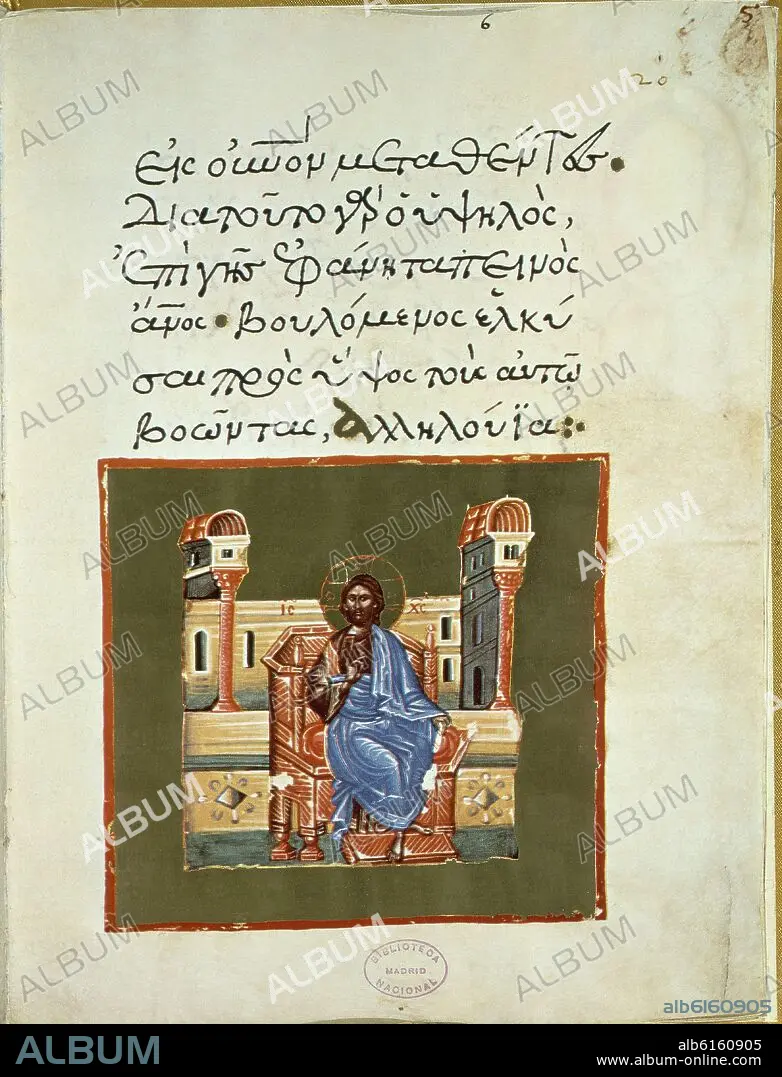 6
5
20
εἰς οὐνον μεταθέντες·
Διατοῦτο γὰρ ὁ ὑψηλὸς,
ἐπὶ γῆς ἐφάνη ταπεινὸς
ἄνος· βουλόμενος ἑλκύ
σαι πρὸς ὕψος τοὺς αὐτῶ
βοῶντας, ἀλληλούϊα:·
ΙC ΧC
BIBLIOTECA
MADRID
NACIONAL
ALBUM
alb6160905
ALBUM
alb6160905
www.album-online.com